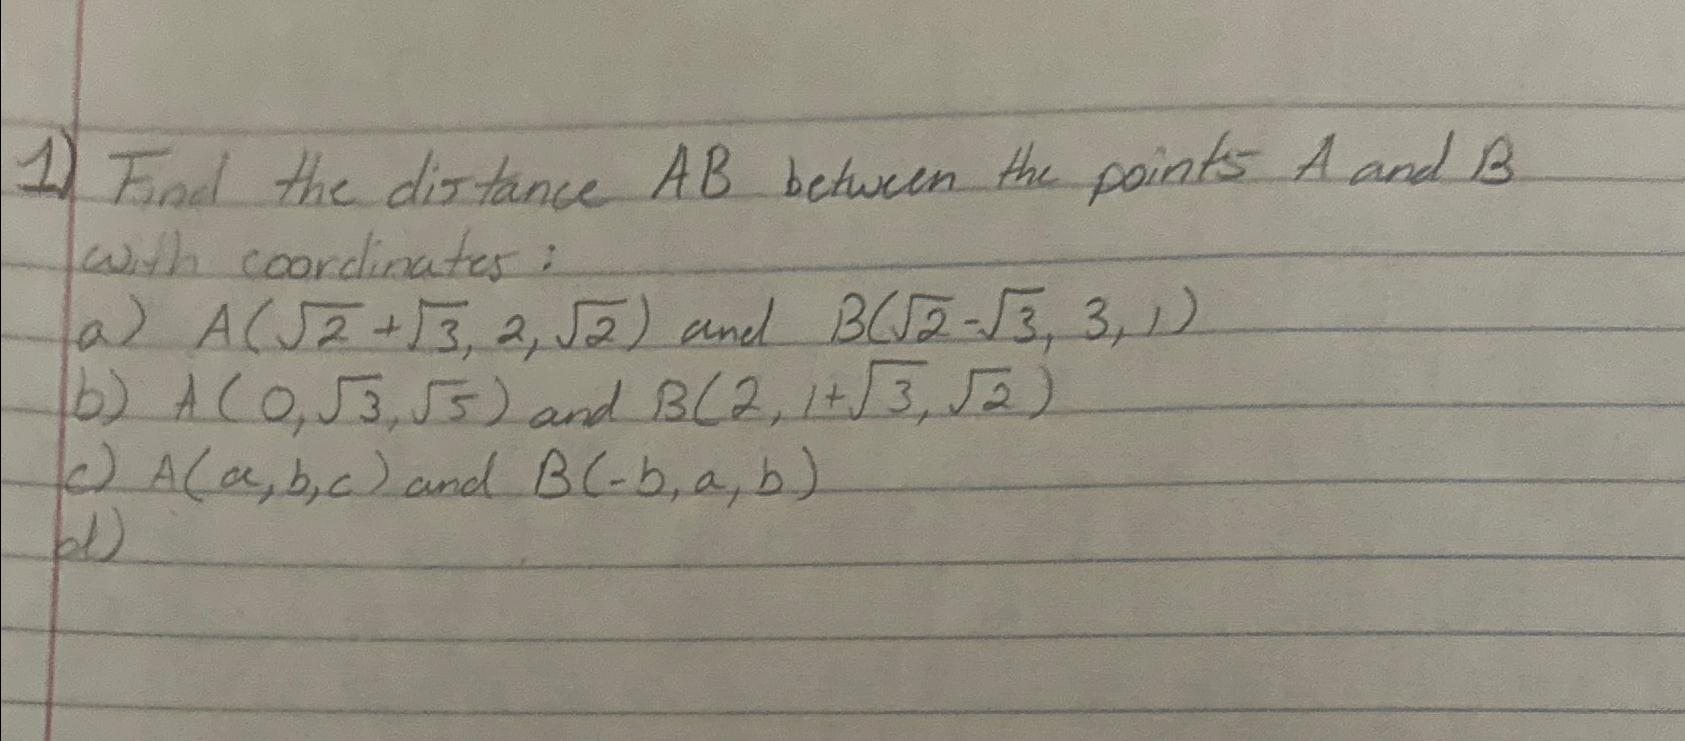 1) Find the distance AB between the points A and B
with coordinates:
a) A(√2+√3, 2, √2) and B(√2-√3, 3, 1)
b) A(0, √3, √5) and B(2, 1+√3, √2)
c) A(a, b, c) and B(-b, a, b)
d)